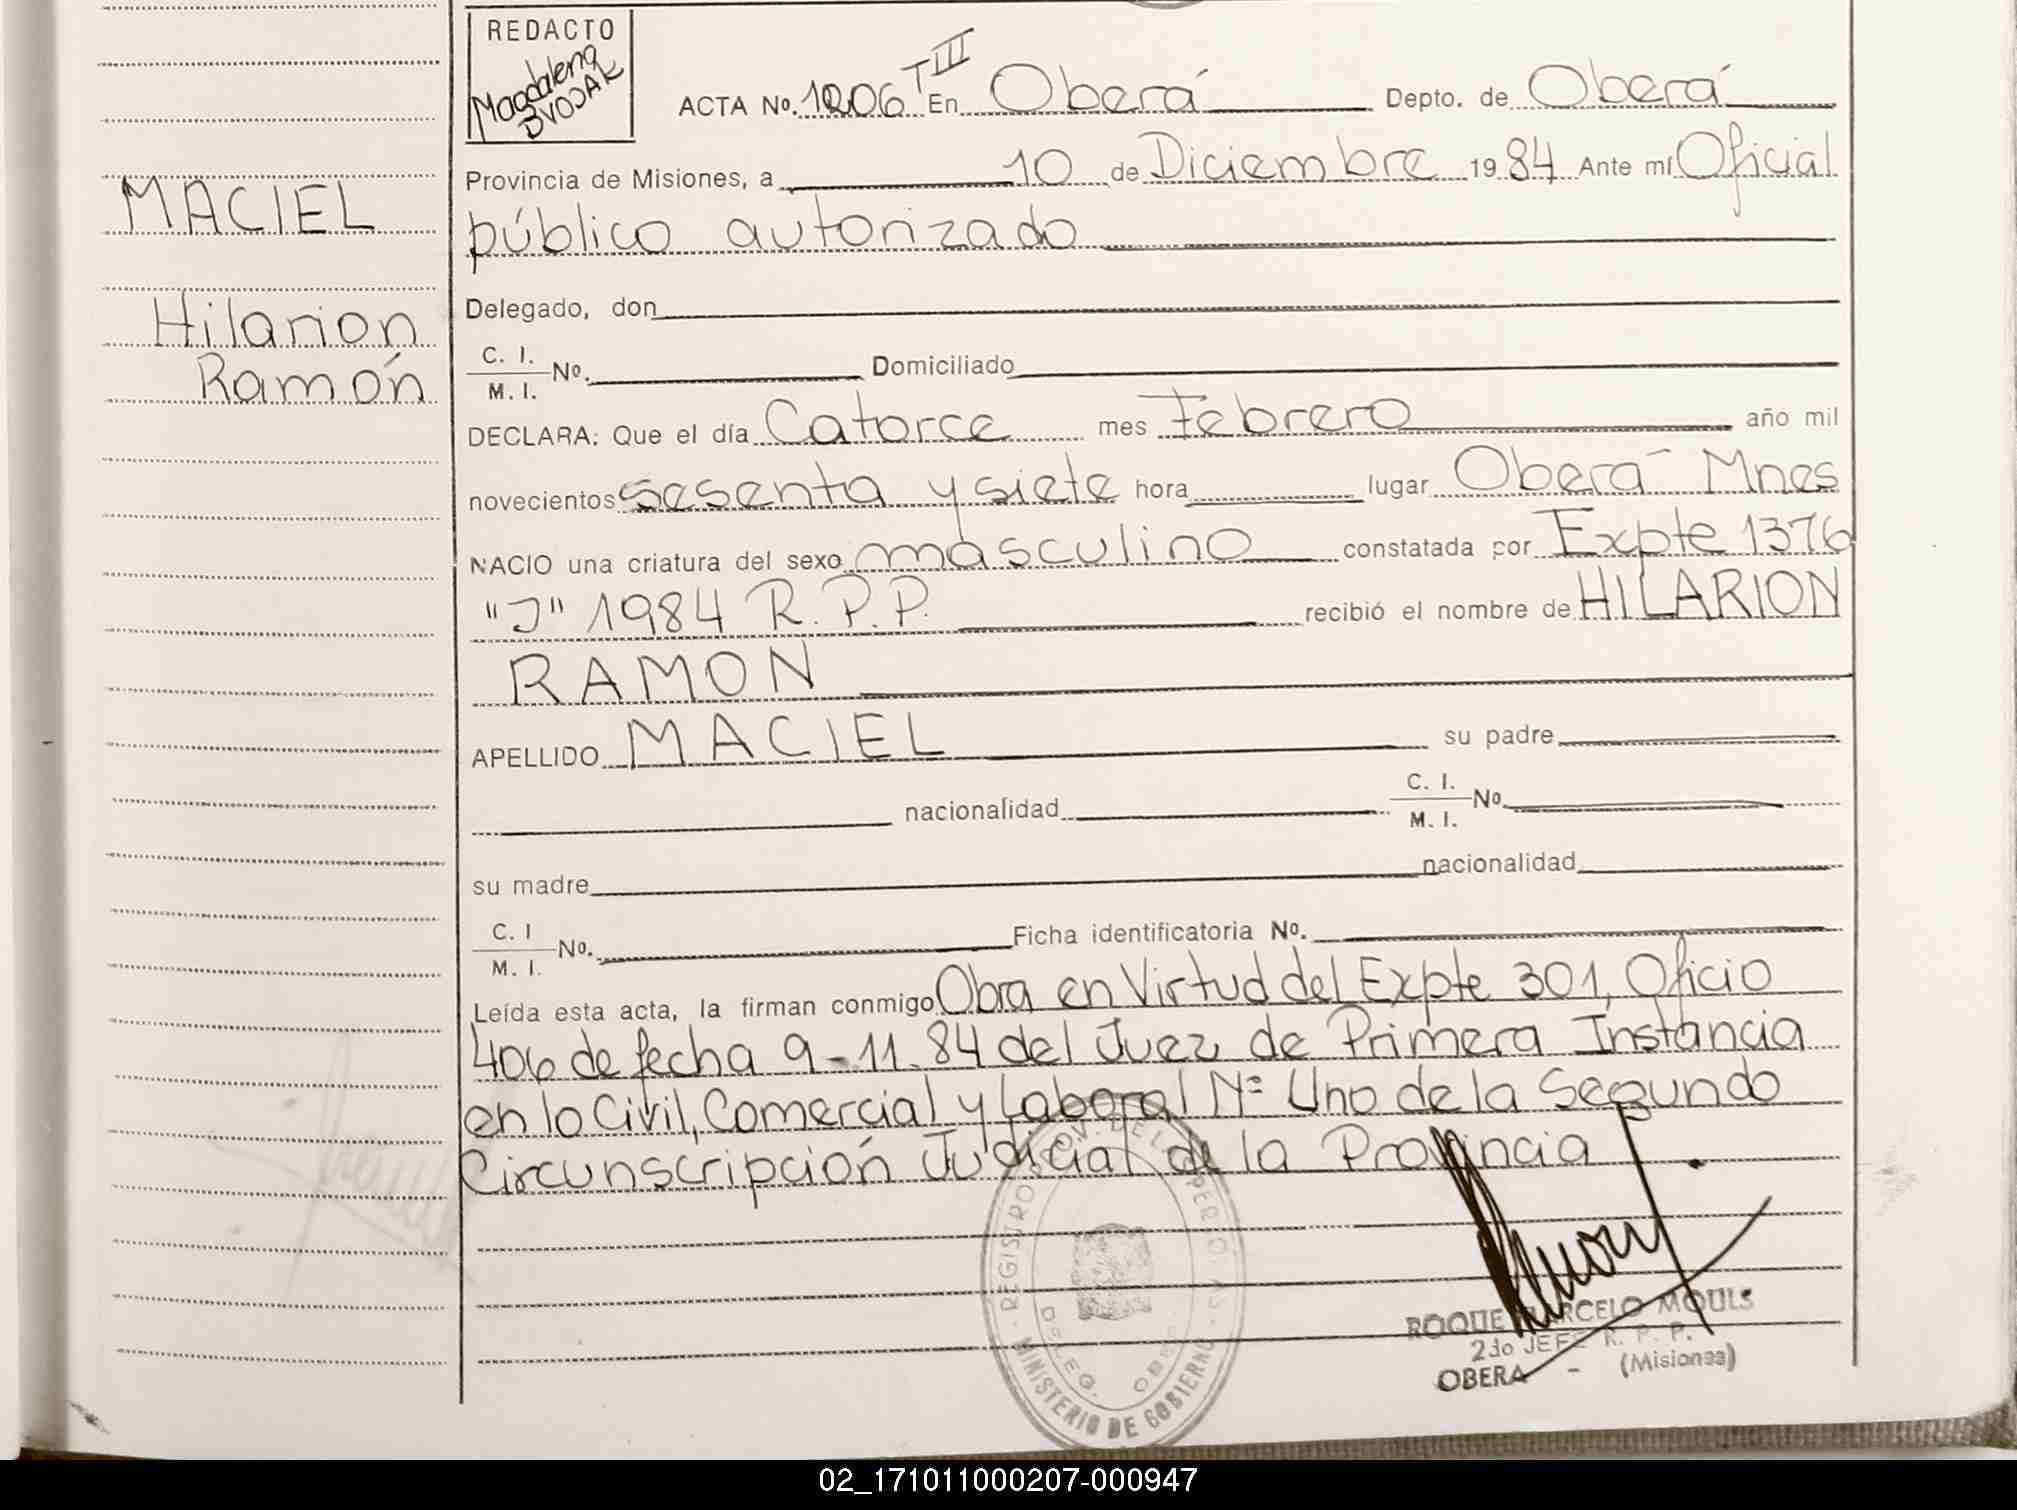 REDACTO
Magdalena
DVOJAK
ACTA No. 1206 T III En Oberá Depto. de Oberá
Provincia de Misiones, a 10 de Diciembre 1984 Ante mí Oficial
público autorizado
Delegado, don
C. I.
M. I. No. Domiciliado
DECLARA: Que el día Catorce mes Febrero año mil
novecientos sesenta y siete hora lugar Oberá Mnes
NACIO una criatura del sexo masculino constatada por Expte 1376
"J" 1984 R. P. P. recibió el nombre de HILARION
RAMON
APELLIDO MACIEL su padre
nacionalidad C. I.
M. I. No.
su madre nacionalidad
C. I
M. I. No. Ficha identificatoria No.
Leída esta acta, la firman conmigo Obra en Virtud del Expte 301, Oficio
406 de fecha 9-11.84 del Juez de Primera Instancia
en lo Civil, Comercial y Laboral Nº Uno de la Segundo
Circunscripción Judicial de la Provincia.
MACIEL
Hilarion
Ramón
REGISTRO
MINISTERIO DE GOBIERNO
DELEG. OBERA
ROQUE MARCELO MOULS
2do JEFE R. P. P.
OBERA - (Misiones)
02_171011000207-000947